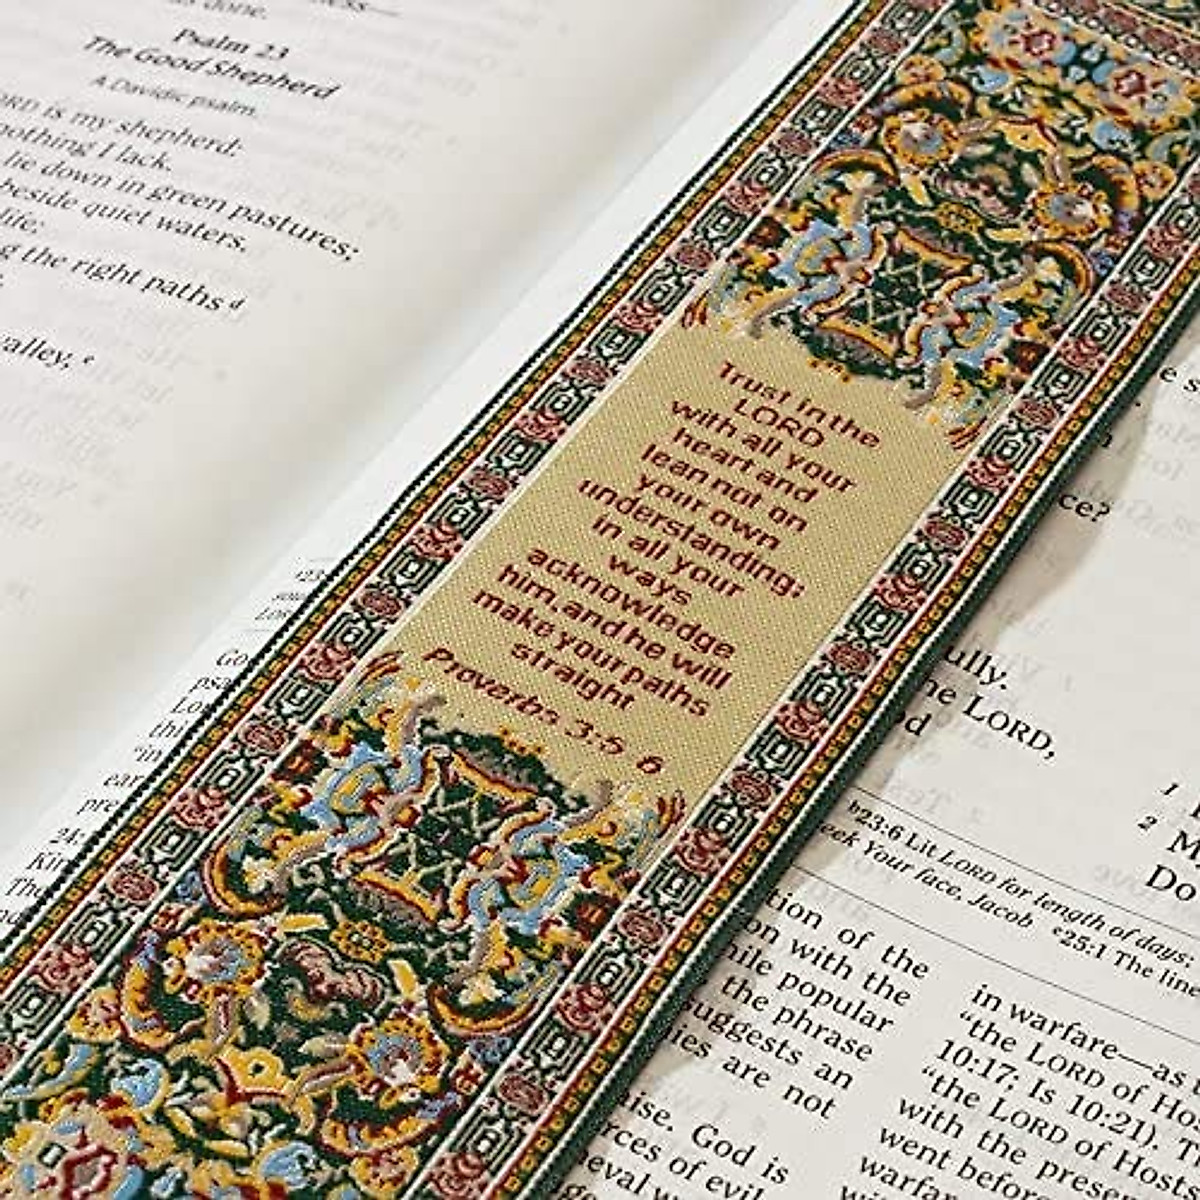 s done.
Psalm 23
The Good Shepherd
A Davidic psalm.
ORD is my shepherd;
nothing I lack.
lie down in green pastures;
beside quiet waters.
life;
g the right paths d
valley, e
Trust in the
LORD
with all your
heart and
lean not on
your own
understanding;
in all your
ways
acknowledge
him, and he will
make your paths
straight
Proverbs 3:5 6
ce?
ully.
he LORD,
od
1
2 M
Do
b23:6 Lit LORD for length of days;
eek Your face, Jacob e25:1 The line
tion of the
on with the
hile popular
the phrase
suggests an
ies are not
aise. God is
rces of evil
in warfare—as
"the LORD of Hos
10:17; Is 10:21). T
"the LORD of Hosts
with the prese
went before
warfar